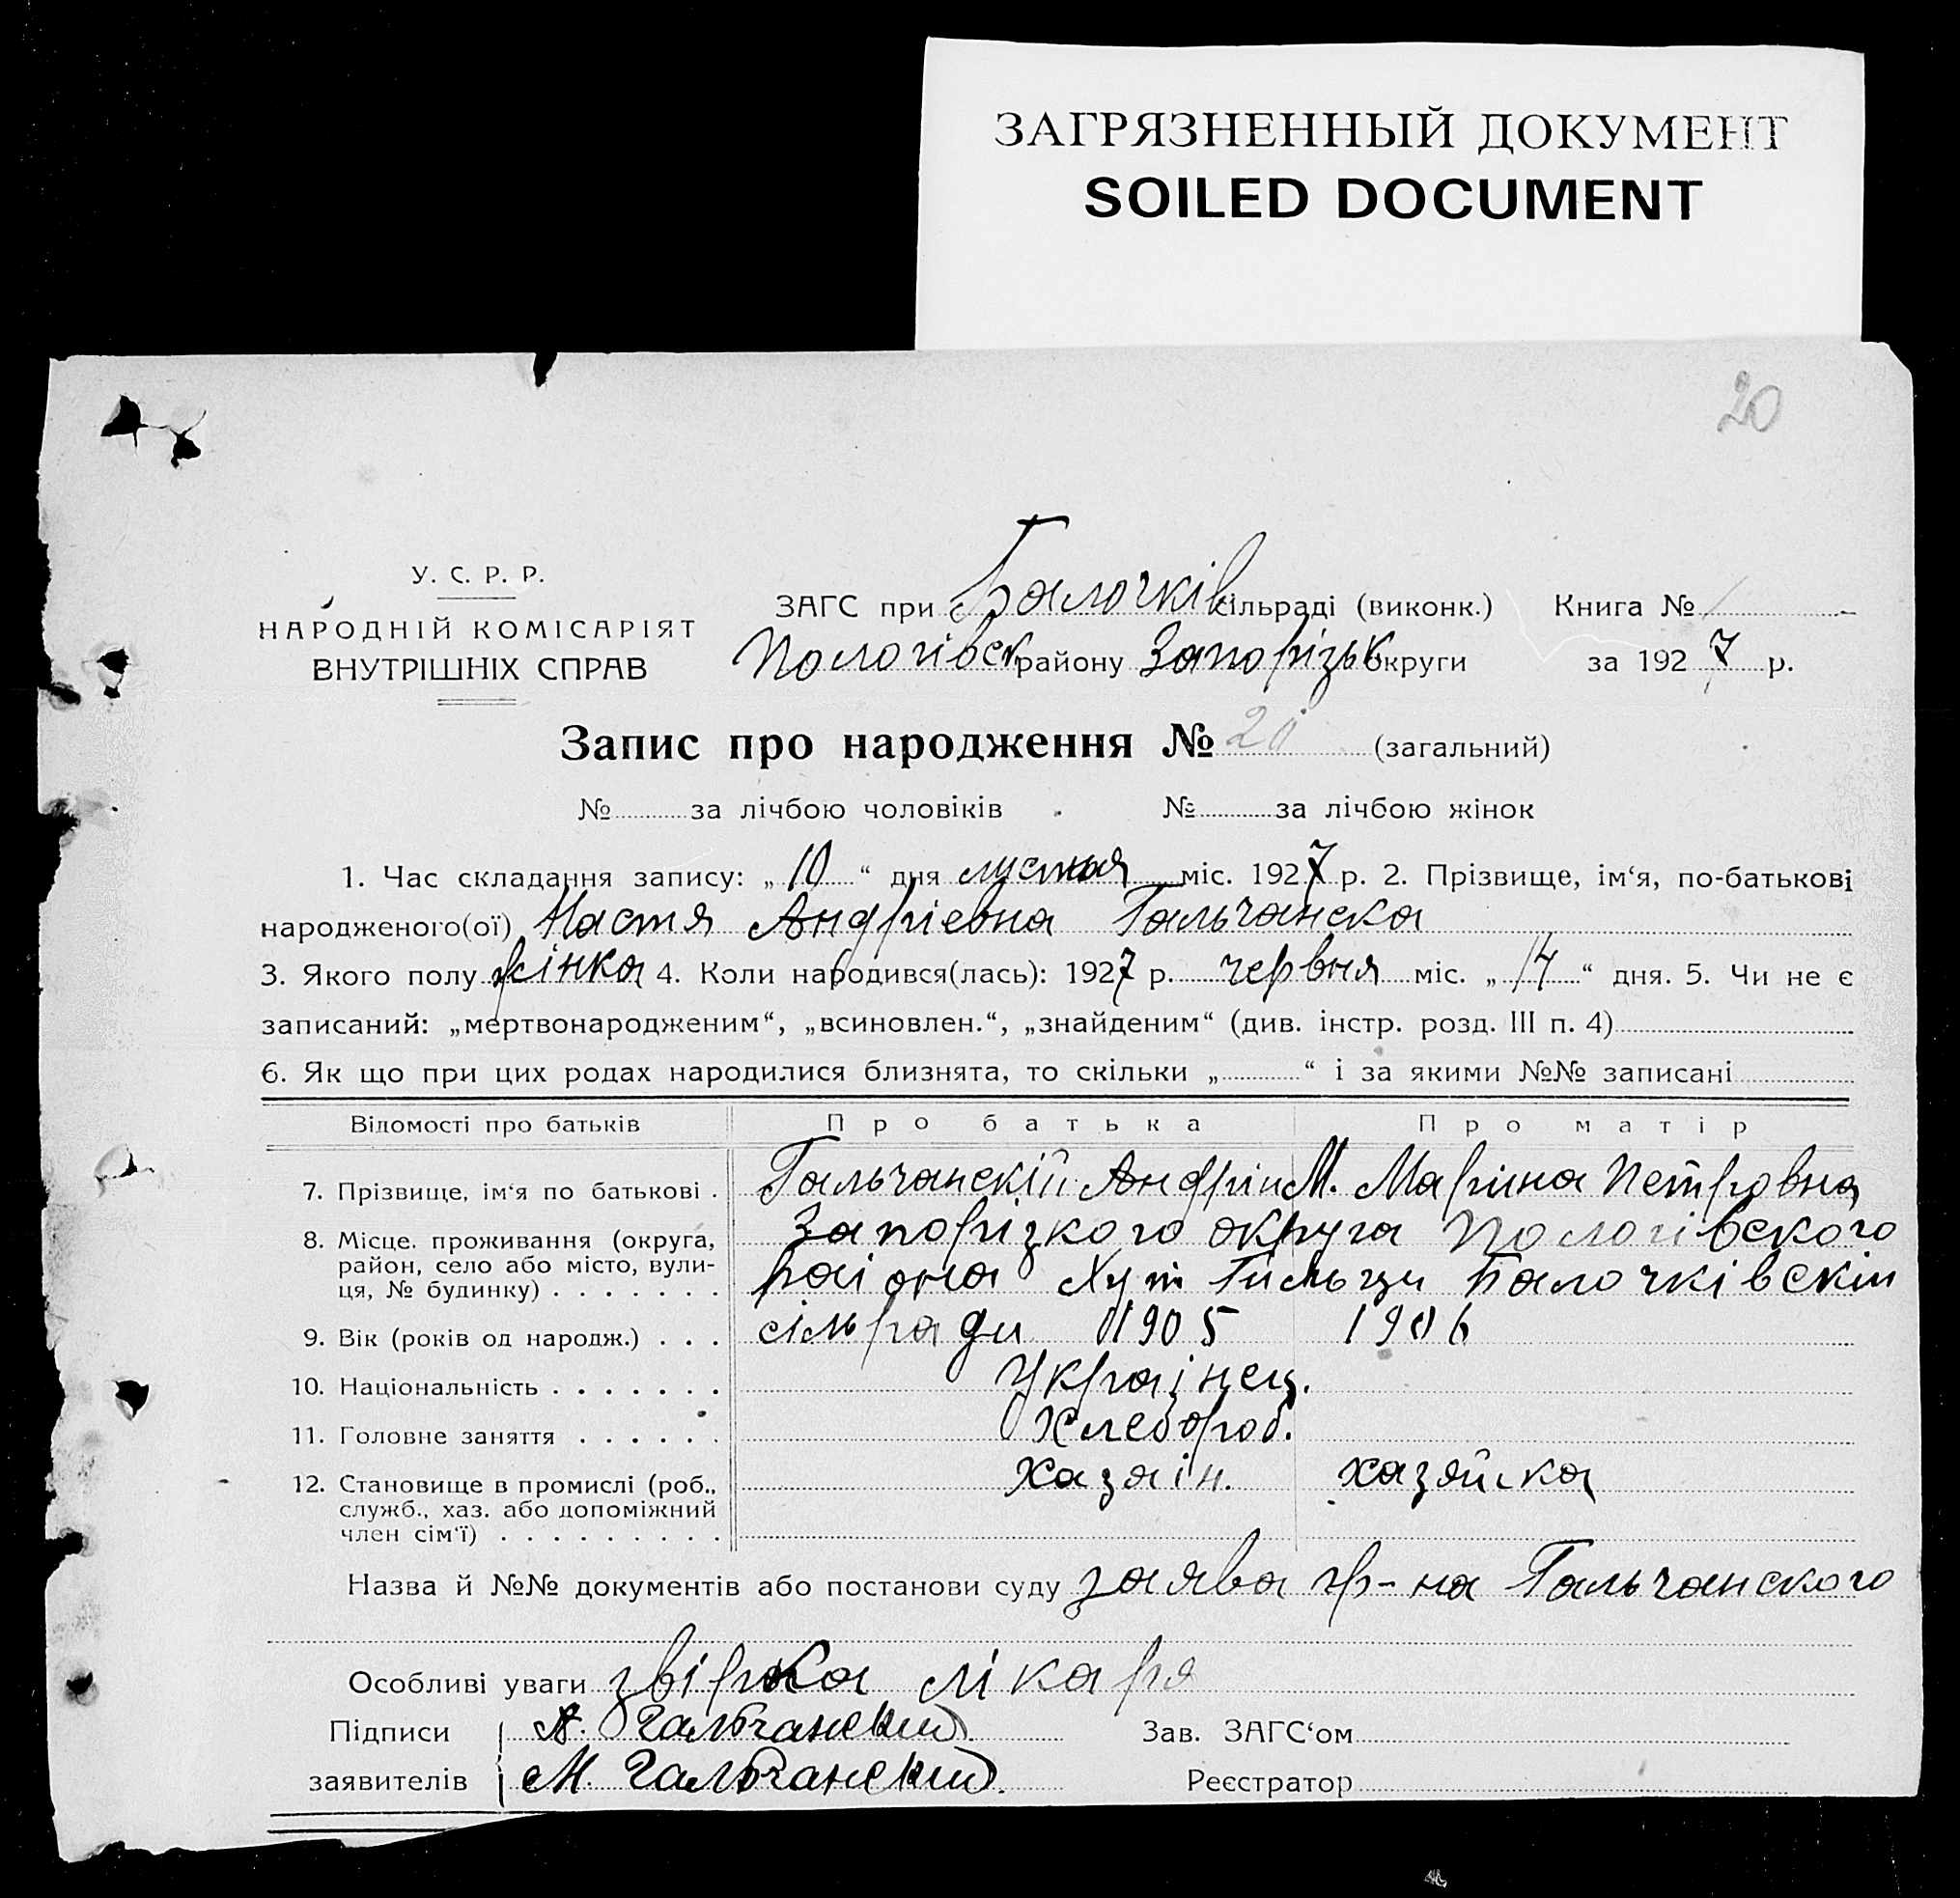 ЗАГРЯЗНЕННЫЙ ДОКУМЕНТ
SOILED DOCUMENT
20
У. С. Р. Р.
НАРОДНІЙ КОМІСАРІЯТ
ВНУТРІШНІХ СПРАВ
ЗАГС при Балочків сільраді (виконк.) Книга № 1
Пологівск району Запорізьк округи за 1927 р.
Запис про народження № 20 (загальний)
№ за лічбою чоловіків № за лічбою жінок
1. Час складання запису: „10“ дня міс. 1927 р. 2. Прізвище, ім‘я, по-батькові
народженого(ої) Настя Андріевна Гальчанска
3. Якого полу жінка 4. Коли народився(лась): 1927 р. червня міс. „14“ дня. 5. Чи не є
записаний: „мертвонародженим“, „всиновлен.“, „знайденим“ (див. інстр. розд. III п. 4)
6. Як що при цих родах народилися близнята, то скільки „ “ і за якими №№ записані
Відомості про батьків Про батька Про матір
7. Прізвище, ім‘я по батькові . Гальчанскій Андрій М. Марина Петровна
8. Місце. проживання (округа, район, село або місто, вулиця, № будинку) . . . . . . . Запорізкого округа Пологівского
раіона Хут Балочківскій
сільради
9. Вік (років од народж.) . . . 1905 1906
10. Національність . . . . . . . Украінец.
11. Головне заняття . . . . . . Хлебороб.
12. Становище в промислі (роб., служб., хаз. або допоміжний член сім‘ї) . . . . . . . . . Хазаін. хазяйка
Назва й №№ документів або постанови суду заява гр-на Гальчанского
Особливі уваги лікаря
Підписи А. Гальчанский Зав. ЗАГС‘ом
заявителів М. Гальчанский. Реєстратор